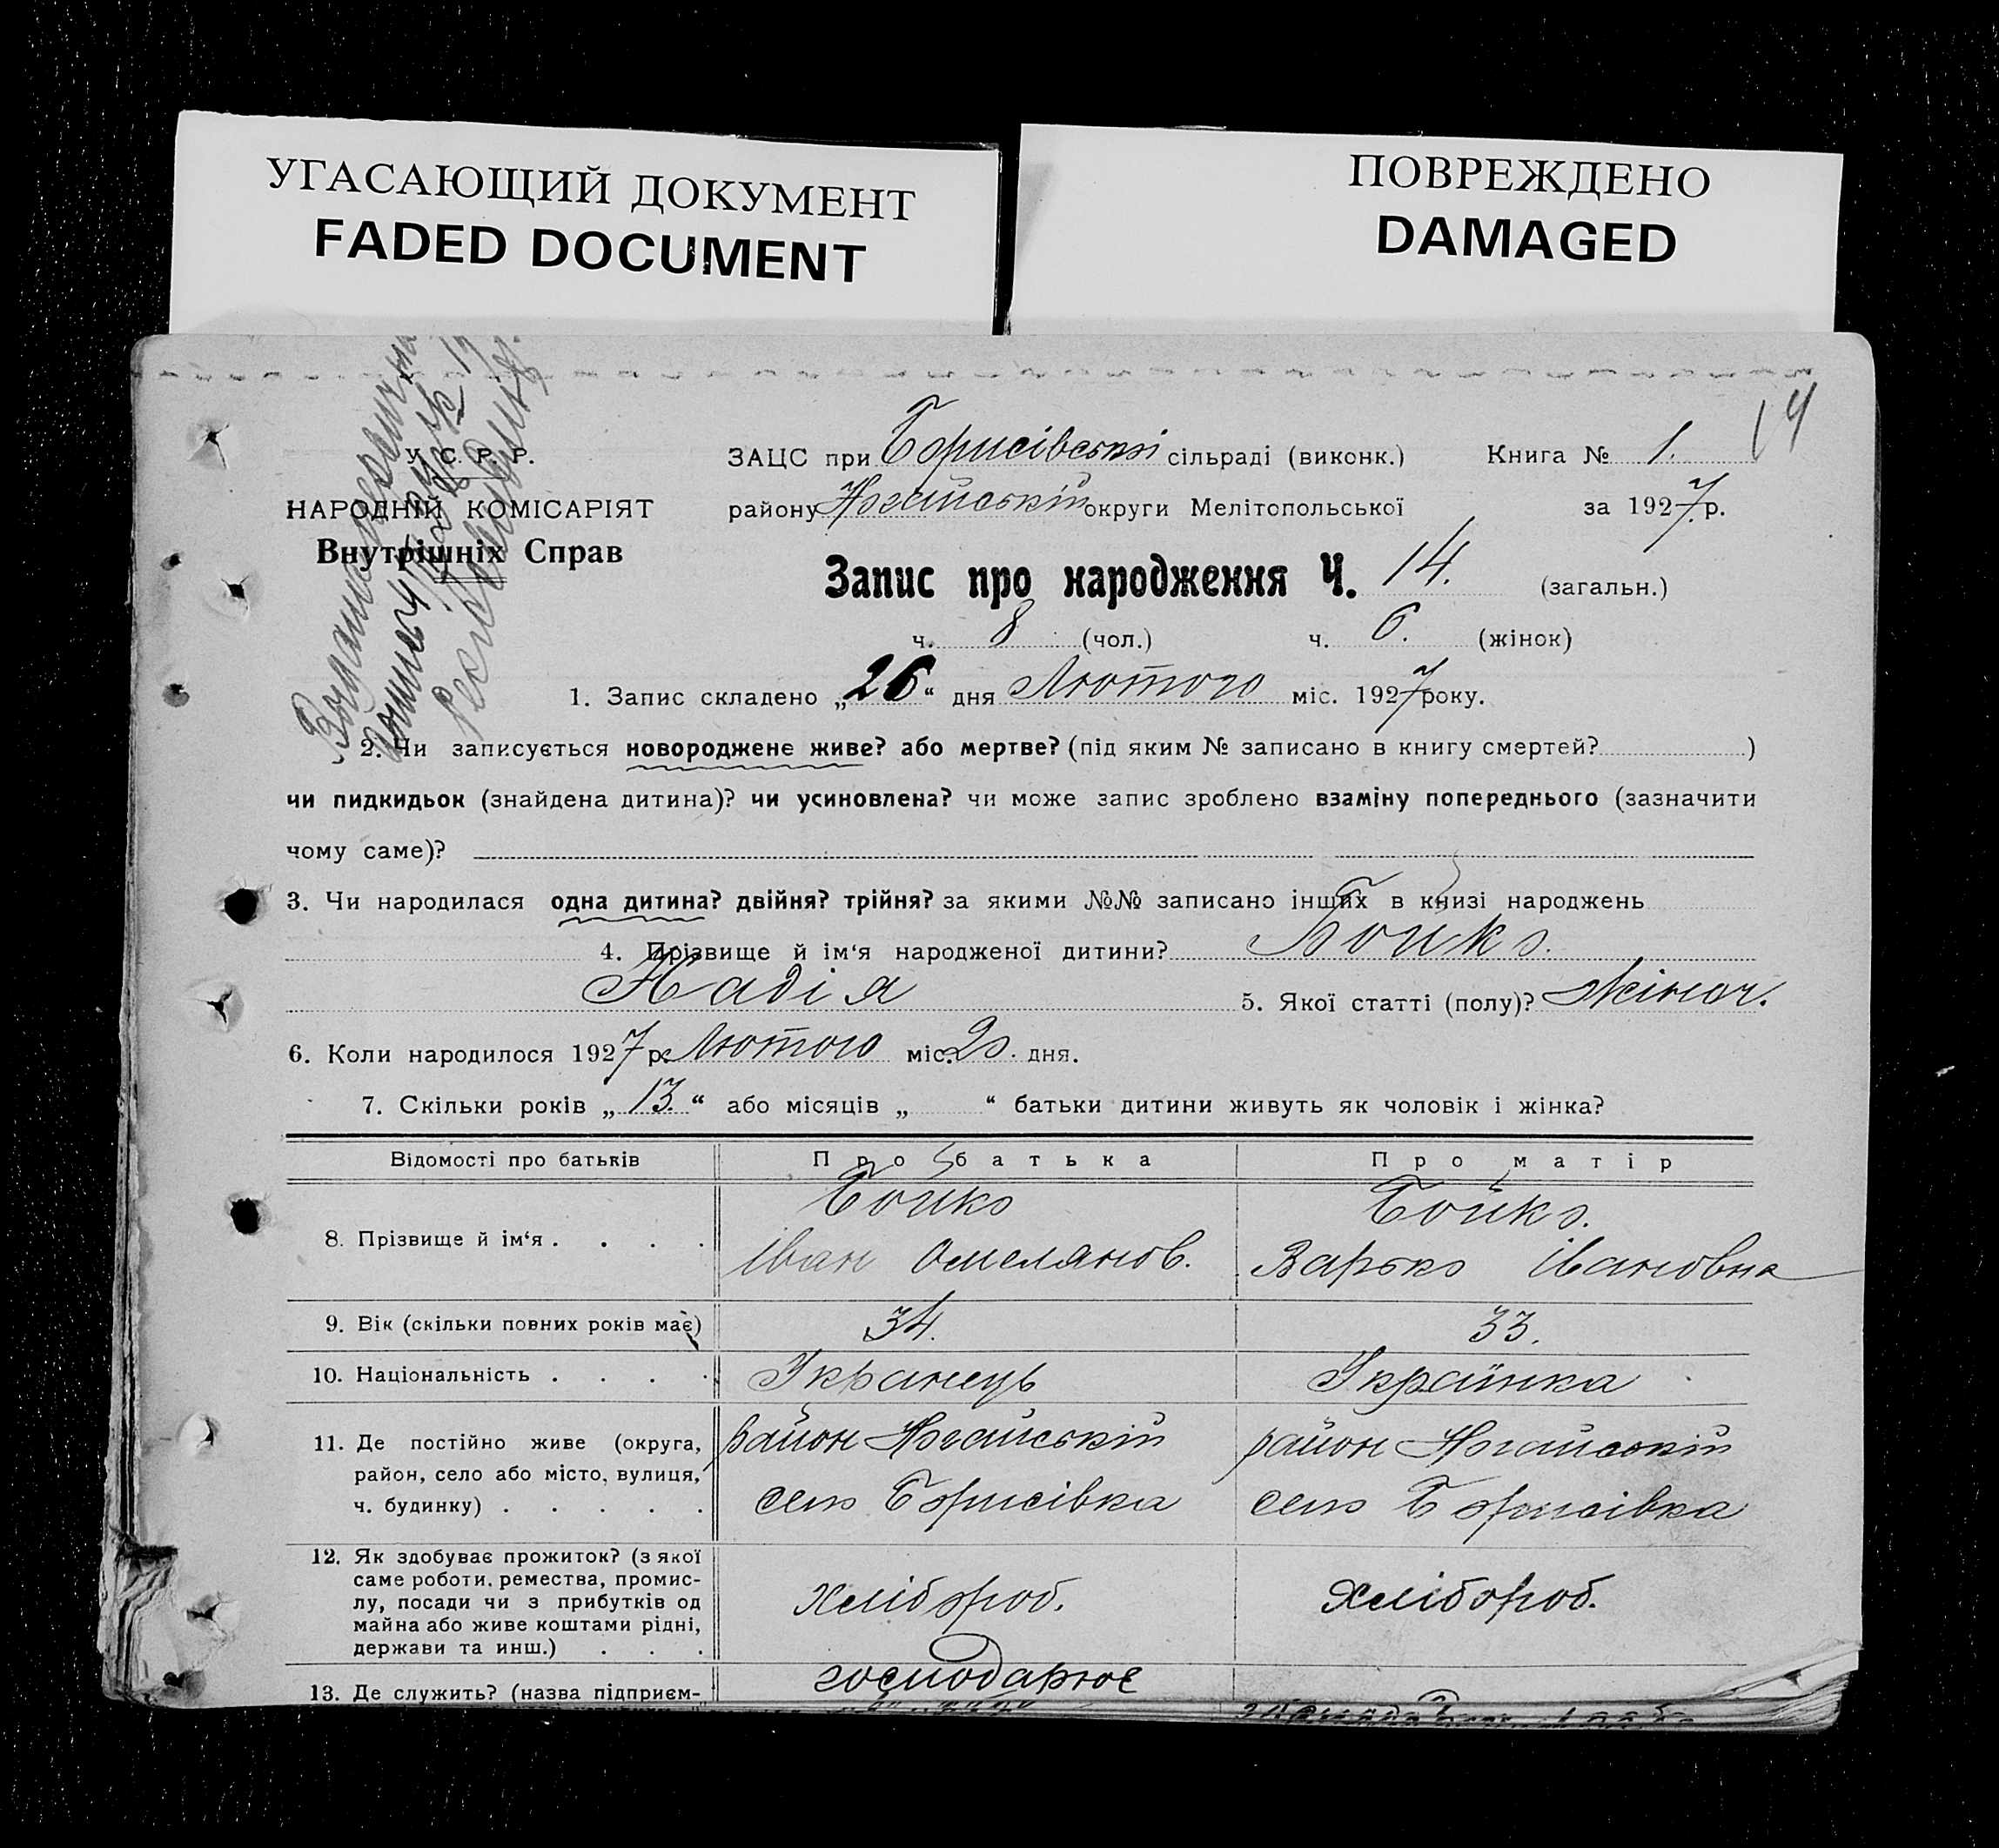 УГАСАЮЩИЙ ДОКУМЕНТ
FADED DOCUMENT
ПОВРЕЖДЕНО
DAMAGED
14
У. С. Р. Р.
НАРОДНІЙ КОМІСАРІЯТ
Внутрішніх Справ
ЗАЦС при Борисівській сільраді (виконк.) Книга № 1.
району Ногайській округи Мелітопольської за 1927 р.
Запис про народження Ч. 14. (загальн.)
ч. 8 (чол.) ч. 6. (жінок)
1. Запис складено „26“ дня Лютого міс. 1927 року.
2. Чи записується новороджене живе? або мертве? (під яким № записано в книгу смертей? )
чи пидкидьок (знайдена дитина)? чи усиновлена? чи може запис зроблено взаміну попереднього (зазначити
чому саме)?
3. Чи народилася одна дитина? двійня? трійня? за якими №№ записано інших в книзі народжень
4. Прізвище й ім‘я народженої дитини? Бойко.
Надія 5. Якої статті (полу)? Жіноч.
6. Коли народилося 1927 р. Лютого міс. 20. дня.
7. Скільки років „13.“ або місяців „ “ батьки дитини живуть як чоловік і жінка?
Відомості про батьків Про батька Про матір
8. Прізвище й ім‘я . . . . Бойко Бойко.
Іван Омелянов. Варько Івановна
9. Вік (скільки повних років має) 34. 33.
10. Національність . . . . Укранець Українка
11. Де постійно живе (округа, район, село або місто, вулиця, ч. будинку) . . . . . район Ногайській район Ногайській
село Борисівка село Борисівка
12. Як здобуває прожиток? (з якої саме роботи, ремества, промислу, посади чи з прибутків од майна або живе коштами рідні, держави та инш.) . . . Хлібороб. Хлібороб.
13. Де служить? (назва підприєм- господарює